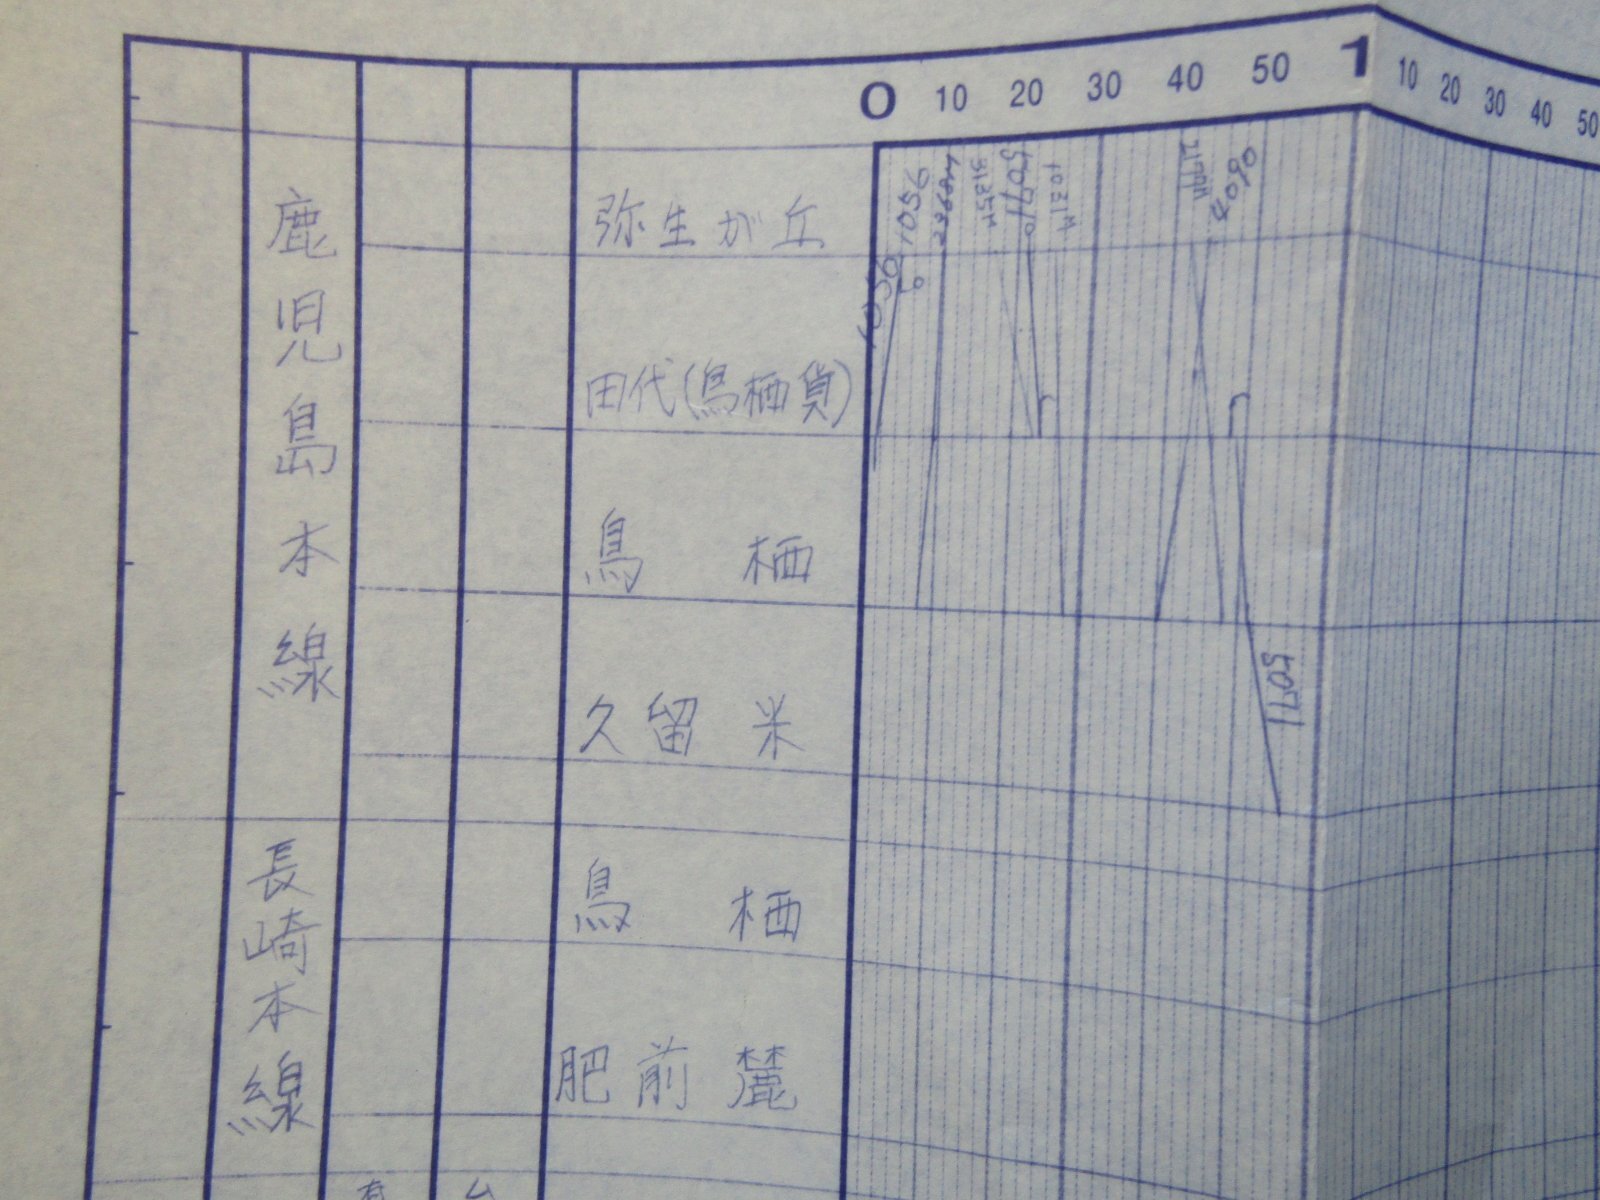 0 10 20 30 40 50 1 10 20 30 40 50
鹿児島本線
弥生が丘
田代(鳥栖貨)
鳥栖
久留米
長崎本線
鳥栖
肥前麓
1056
1056
5071
4090
5071